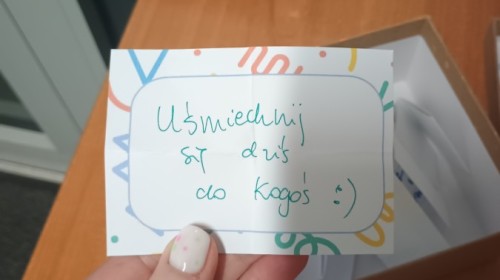 Uśmiechnij
się dziś
do kogoś :)